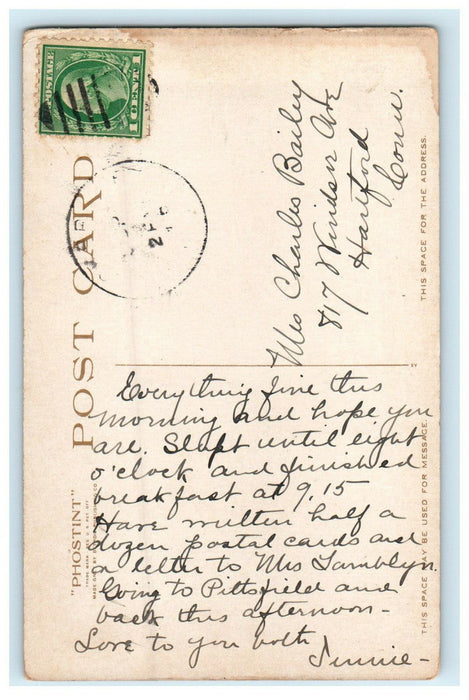 POSTAGE
1 CENT 1
POST CARD
"PHOSTINT"
Mrs Charles Bailey
817 Windsor Ave
Hartford
Conn.
THIS SPACE FOR THE ADDRESS.
Everything fine this
morning and hope you
are. Slept until eight
o'clock and finished
breakfast at 9.15
Have written half a
dozen postal cards and
a letter to Mrs Tamblyn.
Going to Pittsfield and
back this afternoon -
Love to you both
Jennie -
THIS SPACE MAY BE USED FOR MESSAGE.